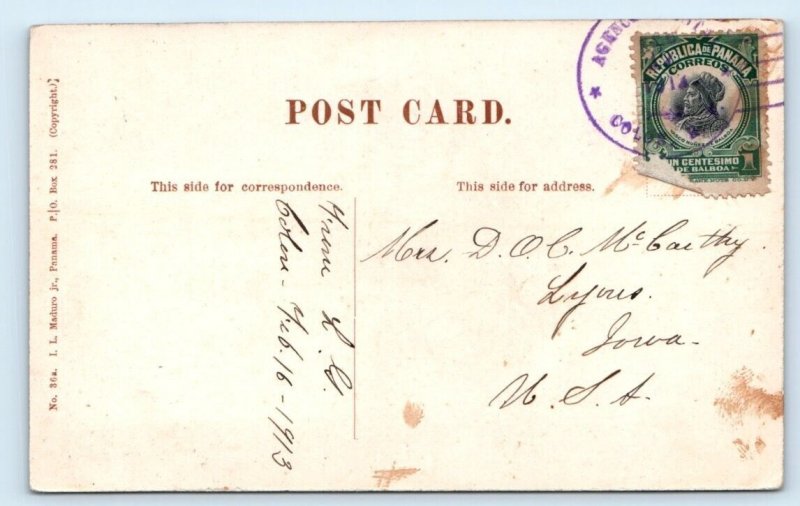 POST CARD.
This side for correspondence.
This side for address.
No. 36a. I. L. Maduro jr., Panama. P.|O. Box 281. (Copyright.)
From L. G.
Colon - Feb. 16 - 1913
Mrs. D. O. C. McCarthy
Lyons.
Iowa-
U. S. A.
REPUBLICA DE PANAMA
CORREOS
UN CENTESIMO
DE BALBOA
1
AGENC
COL